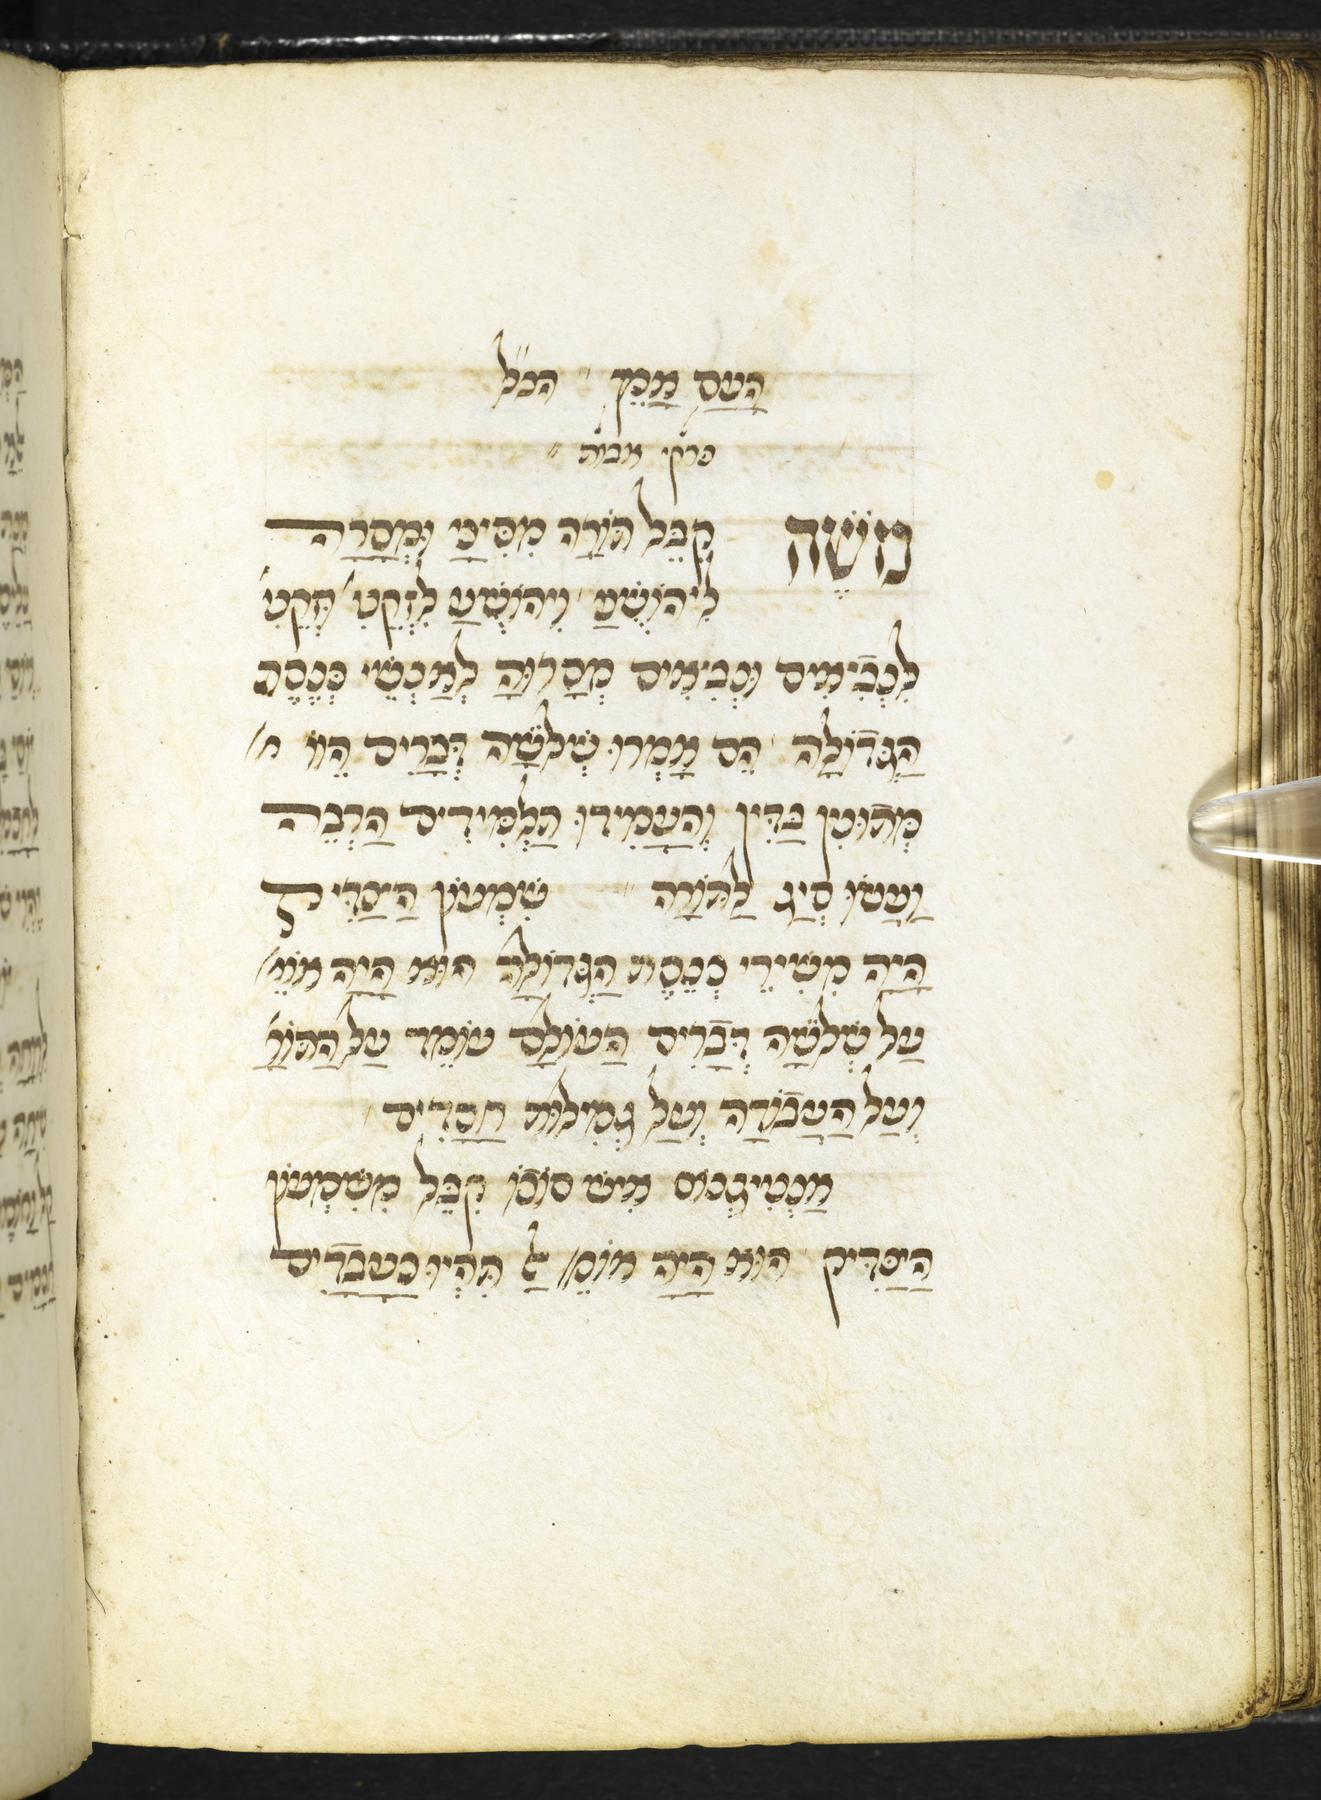 הָעָם מָמֶךָ הכ״ל
פרקי אבות
מֹשֶׁה קִבֵּל תּוֹרָה מִסִּינַי וּמְסָרָהּ
לִיהוֹשֻׁעַ וִיהוֹשֻׁעַ לִזְקֵנִ׳ זְקֵנִ׳
לִנְבִיאִים וּנְבִיאִים מְסָרוּהָ לְאַנְשֵׁי כְּנֶסֶת
הַגְּדוֹלָה הֵם אָמְרוּ שְׁלֹשָׁה דְּבָרִים הֱווּ
מְתוּנִין בַּדִּין וְהַעֲמִידוּ תַּלְמִידִים הַרְבֵּה
וַעֲשׂוּ סְיָג לַתּוֹרָה שִׁמְעוֹן הַצַּדִּיק
הָיָה מִשְּׁיֵרֵי כְּנֶסֶת הַגְּדוֹלָה הוּא הָיָה אוֹמֵ׳
עַל שְׁלֹשָׁה דְּבָרִים הָעוֹלָם עוֹמֵד עַל הַתּוֹרָ׳
וְעַל הָעֲבוֹדָה וְעַל גְּמִילוּת חֲסָדִים
אַנְטִיגְנוֹס אִישׁ סוֹכוֹ קִבֵּל מִשִּׁמְעוֹן
הַצַּדִּיק הוּא הָיָה אוֹמֵ׳ אַל תִּהְיוּ כַּעֲבָדִים